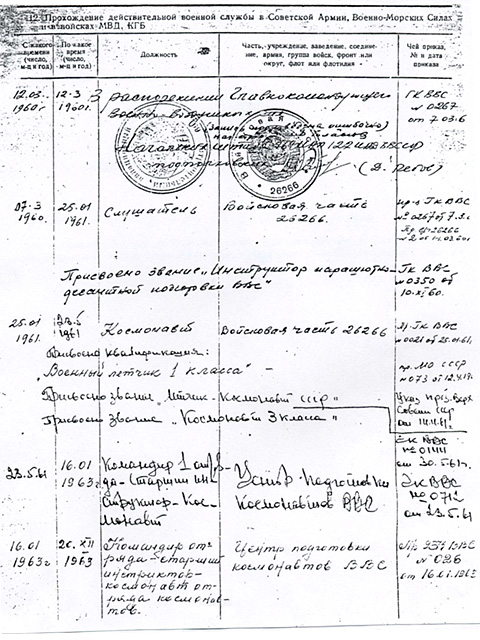 12. Прохождение действительной военной службы в Советской Армии, Военно-Морских Силах
и в войсках МВД, КГБ
С какого времени (число, м-ц и год)
По какое время (число, м-ц и год)
Должность
Часть, учреждение, заведение, соединение, армия, группа войск, фронт или округ, флот или флотилия
Чей приказ, № и дата приказа
12.03. 1960г.
12.3 1960г.
В распоряжении Главнокомандующего
ГК ВВС
№ 0267
от 7.03.6
26266
07.3 1960.
25.01 1961.
Слушатель
Войсковая часть 26266.
ГК ВВС
№ 0267 от 7.3.
Присвоено звание „Инструктор парашютно-
десантной подготовки ВВС"
ГК ВВС
№ 0350 от
10.XI.60.
25.01 1961.
23.5 1961
Космонавт
Войсковая часть 26266
ГК ВВС
№ 0021 от 25.01.61.
Присвоена квалификация:
„Военный летчик 1 класса" –
пр. МО СССР
№ 073 от 12.4.19
Присвоено звание „Летчик-Космонавт СССР"
Указ През. Верх
Совета ССР
от 14.4.61г.
Присвоено звание „Космонавт 3 класса"
ГК ВВС
№ 01111
от 30.5.61г.
23.5.61
16.01 1963г.
Командир 1 отря-
да-Старший ин-
структор-Кос-
монавт
Центр Подготовки
Космонавтов ВВС
ГК ВВС
№ 0712
от 23.5.61
16.01 1963г
20.XII 1963
Командир от-
ряда-старший
инструктор-
космонавт от-
ряда космонав-
тов.
Центр подготовки
космонавтов ВВС
ВВС
№ 026
от 16.01.1963